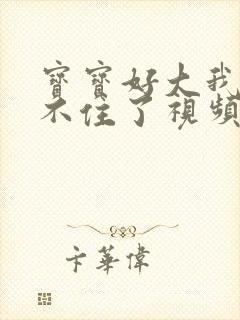 寶寶好大我
不住了視頻
卡華偉